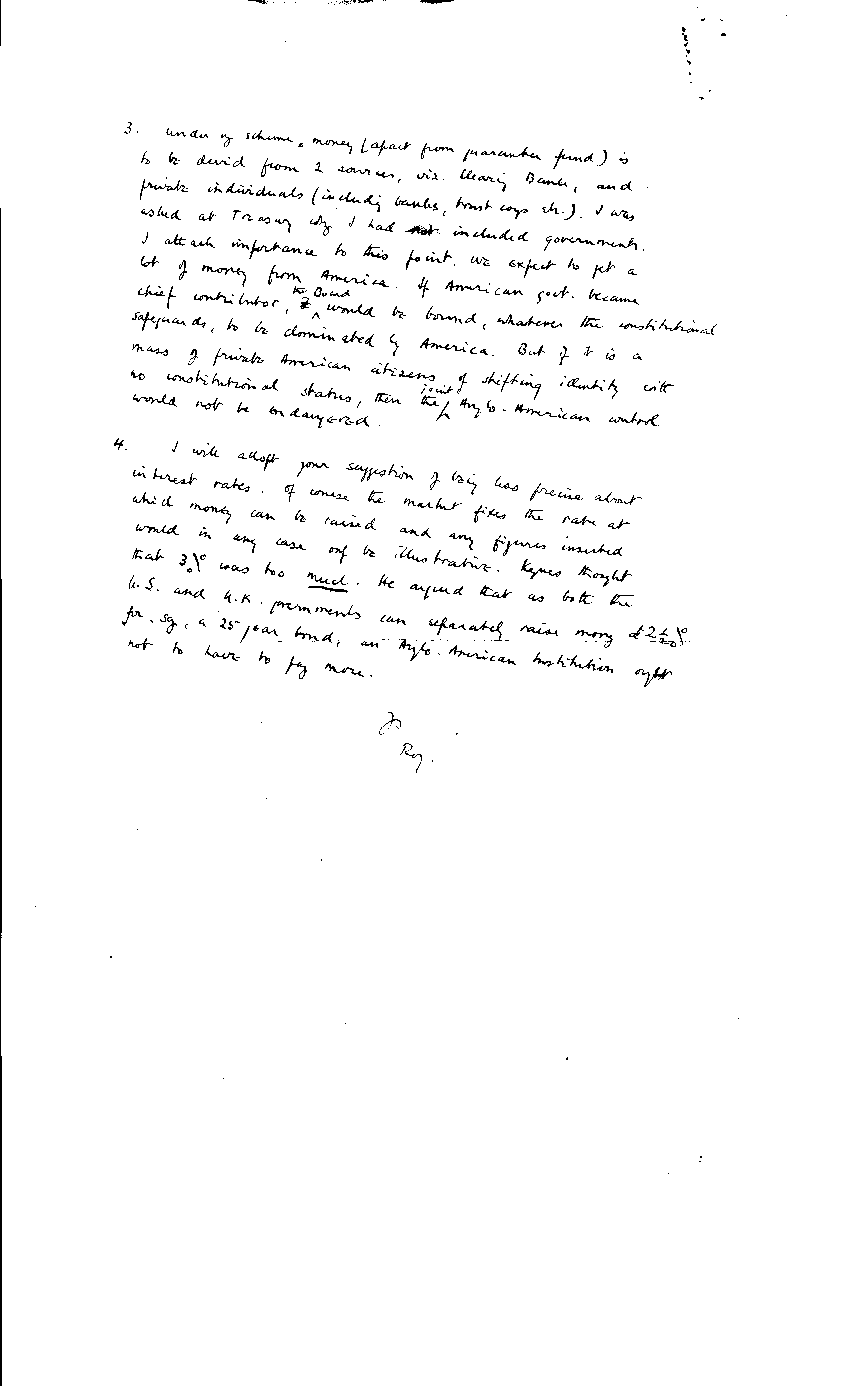 3. Under my scheme, money (apart from guarantee fund) is
to be derived from 2 sources, viz. Clearing Banks, and
private individuals (including banks, trust coys etc.). I was
asked at Treasury why I had not included governments.
I attach importance to this point. We expect to get a
lot of money from America. If American govt. became
chief contributor, the Board would be bound, whatever the constitutional
safeguards, to be dominated by America. But if it is a
mass of private American citizens of shifting identity with
no constitutional status, then the joint Anglo-American control
would not be endangered.
4. I will adopt your suggestion of being less precise about
interest rates. Of course the market fixes the rate at
which money can be raised and any figures inserted
would in any case only be illustrative. Keynes thought
that 3% was too much. He argued that as both the
U.S. and U.K. governments can separately raise money at 2½%
for, say, a 25 year bond, an Anglo-American Institution ought
not to have to pay more.
Yrs
Roy.